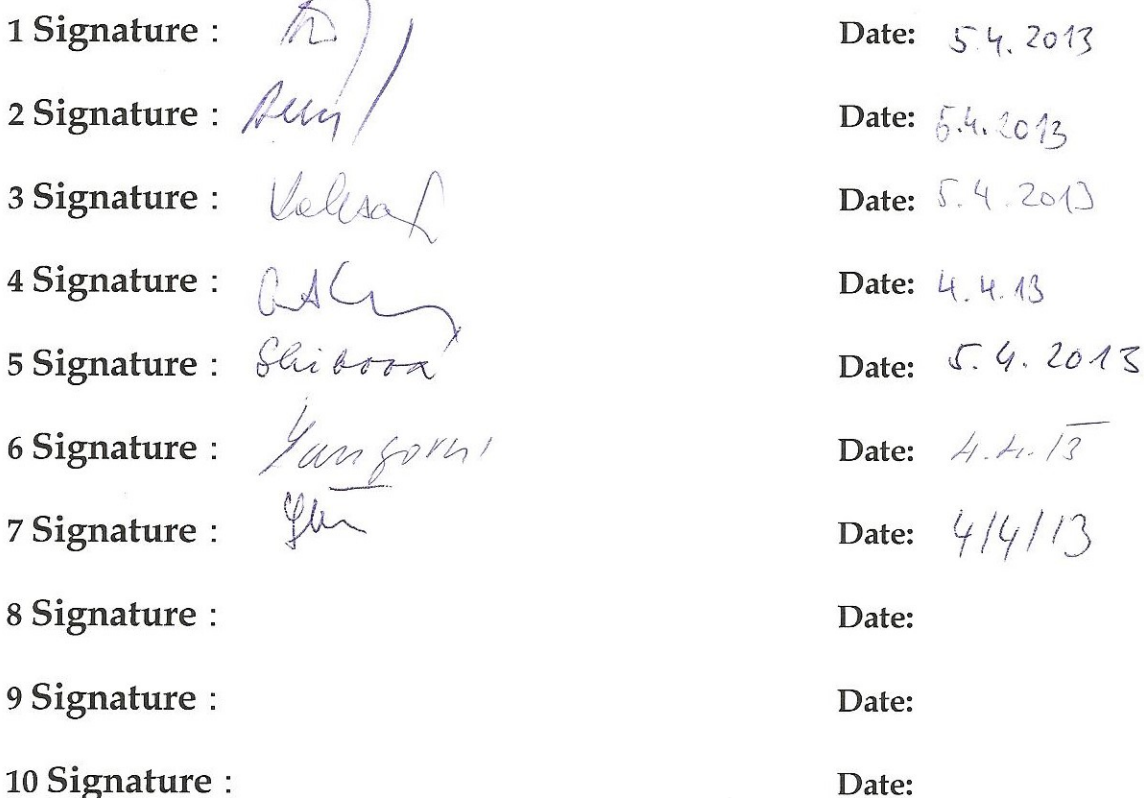 1 Signature : Date: 5.4.2013
2 Signature : Date: 5.4.2013
3 Signature : Date: 5.4.2013
4 Signature : Date: 4.4.13
5 Signature : Date: 5.4.2013
6 Signature : Date: 4.4.13
7 Signature : Date: 4/4/13
8 Signature : Date:
9 Signature : Date:
10 Signature : Date: